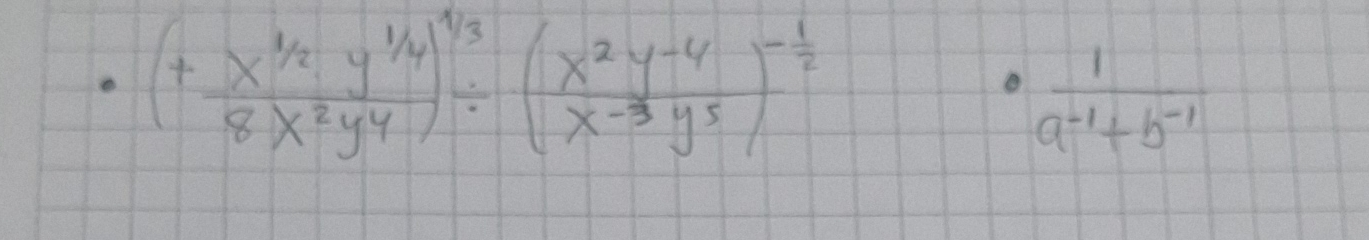 • (+ x^1/2 y^1/4 / 8x^2y^4)^1/3 ÷ (x^2y^-4 / x^-3y^5)^-1/2 • 1 / a^-1+b^-1